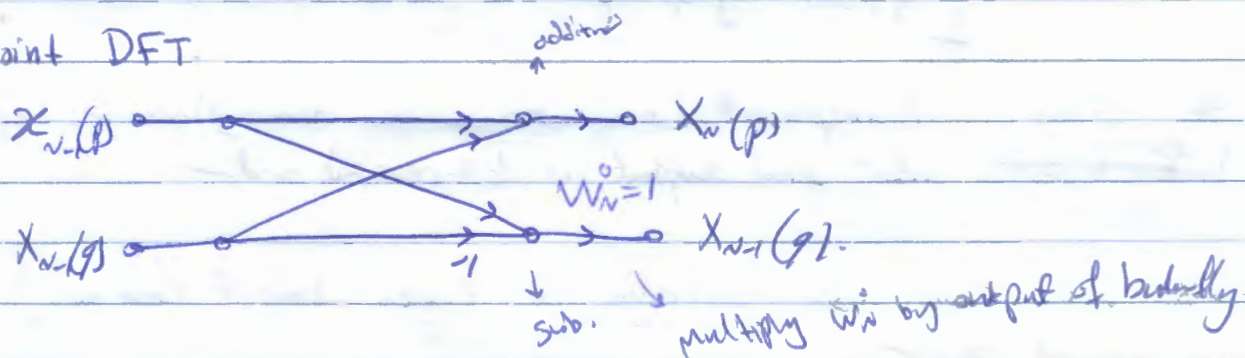 oint DFT
addition
x_{N-1}(p) X_N(p)
W_N^0=1
X_{N-1}(q) -1 X_{N-1}(q).
sub. multiply W_N^0 by output of butterfly